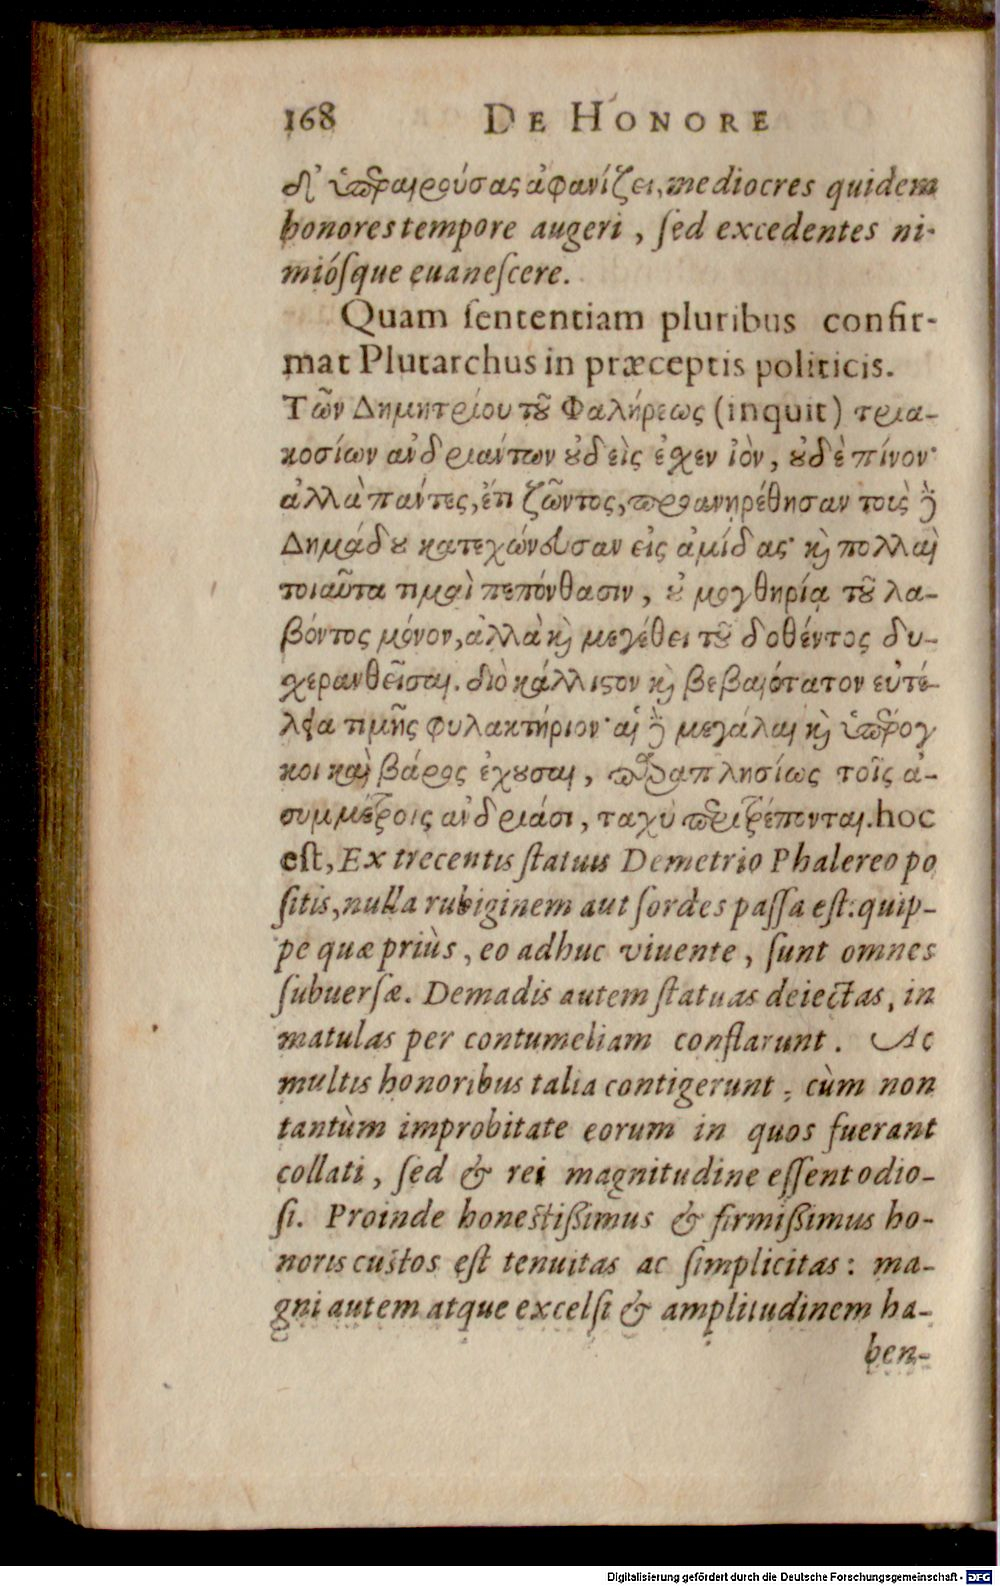 168 DE HONORE
δ' ὑπεραιρούσας ἀφανίζει, mediocres quidem
honores tempore augeri, ſed excedentes ni-
mióſque euaneſcere.
Quam ſententiam pluribus confir-
mat Plutarchus in præceptis politicis.
Τῶν Δημητρίου τοῦ Φαλήρεως (inquit) τρια-
κοσίων ἀνδριάντων οὐδεὶς ἔχεν ἰὸν, οὐδὲ πίνον·
ἀλλὰ πάντες, ἔτι ζῶντος, προανῃρέθησαν τοὺς δὲ
Δημάδου κατεχώνευσαν εἰς ἀμίδας· καὶ πολλαὶ
τοιαῦτα τιμαὶ πεπόνθασιν, οὐ μοχθηρίᾳ τοῦ λα-
βόντος μόνον, ἀλλὰ καὶ μεγέθει τοῦ δοθέντος δυ-
χερανθεῖσαι. διὸ κάλλιστον καὶ βεβαιότατον εὐτέ-
λεια τιμῆς φυλακτήριον· αἱ δὲ μεγάλαι καὶ ὑπέρογ
κοι καὶ βάρος ἔχουσαι, παραπλησίως τοῖς ἀ-
συμμέτροις ἀνδριάσι, ταχὺ περιτρέπονται. hoc
eſt, Ex trecentis ſtatuis Demetrio Phalereo po
ſitis, nulla rubiginem aut ſordes paſſa eſt: quip-
pe quæ priùs, eo adhuc viuente, ſunt omnes
ſubuerſæ. Demadis autem ſtatuas deiectas, in
matulas per contumeliam conflarunt. Ac
multis honoribus talia contigerunt, cùm non
tantùm improbitate eorum in quos fuerant
collati, ſed & rei magnitudine eſſent odio-
ſi. Proinde honeſtiſſimus & firmiſſimus ho-
noris cuſtos eſt tenuitas ac ſimplicitas: ma-
gni autem atque excelſi & amplitudinem ha-
ben-
Digitalisierung gefördert durch die Deutsche Forschungsgemeinschaft - DFG